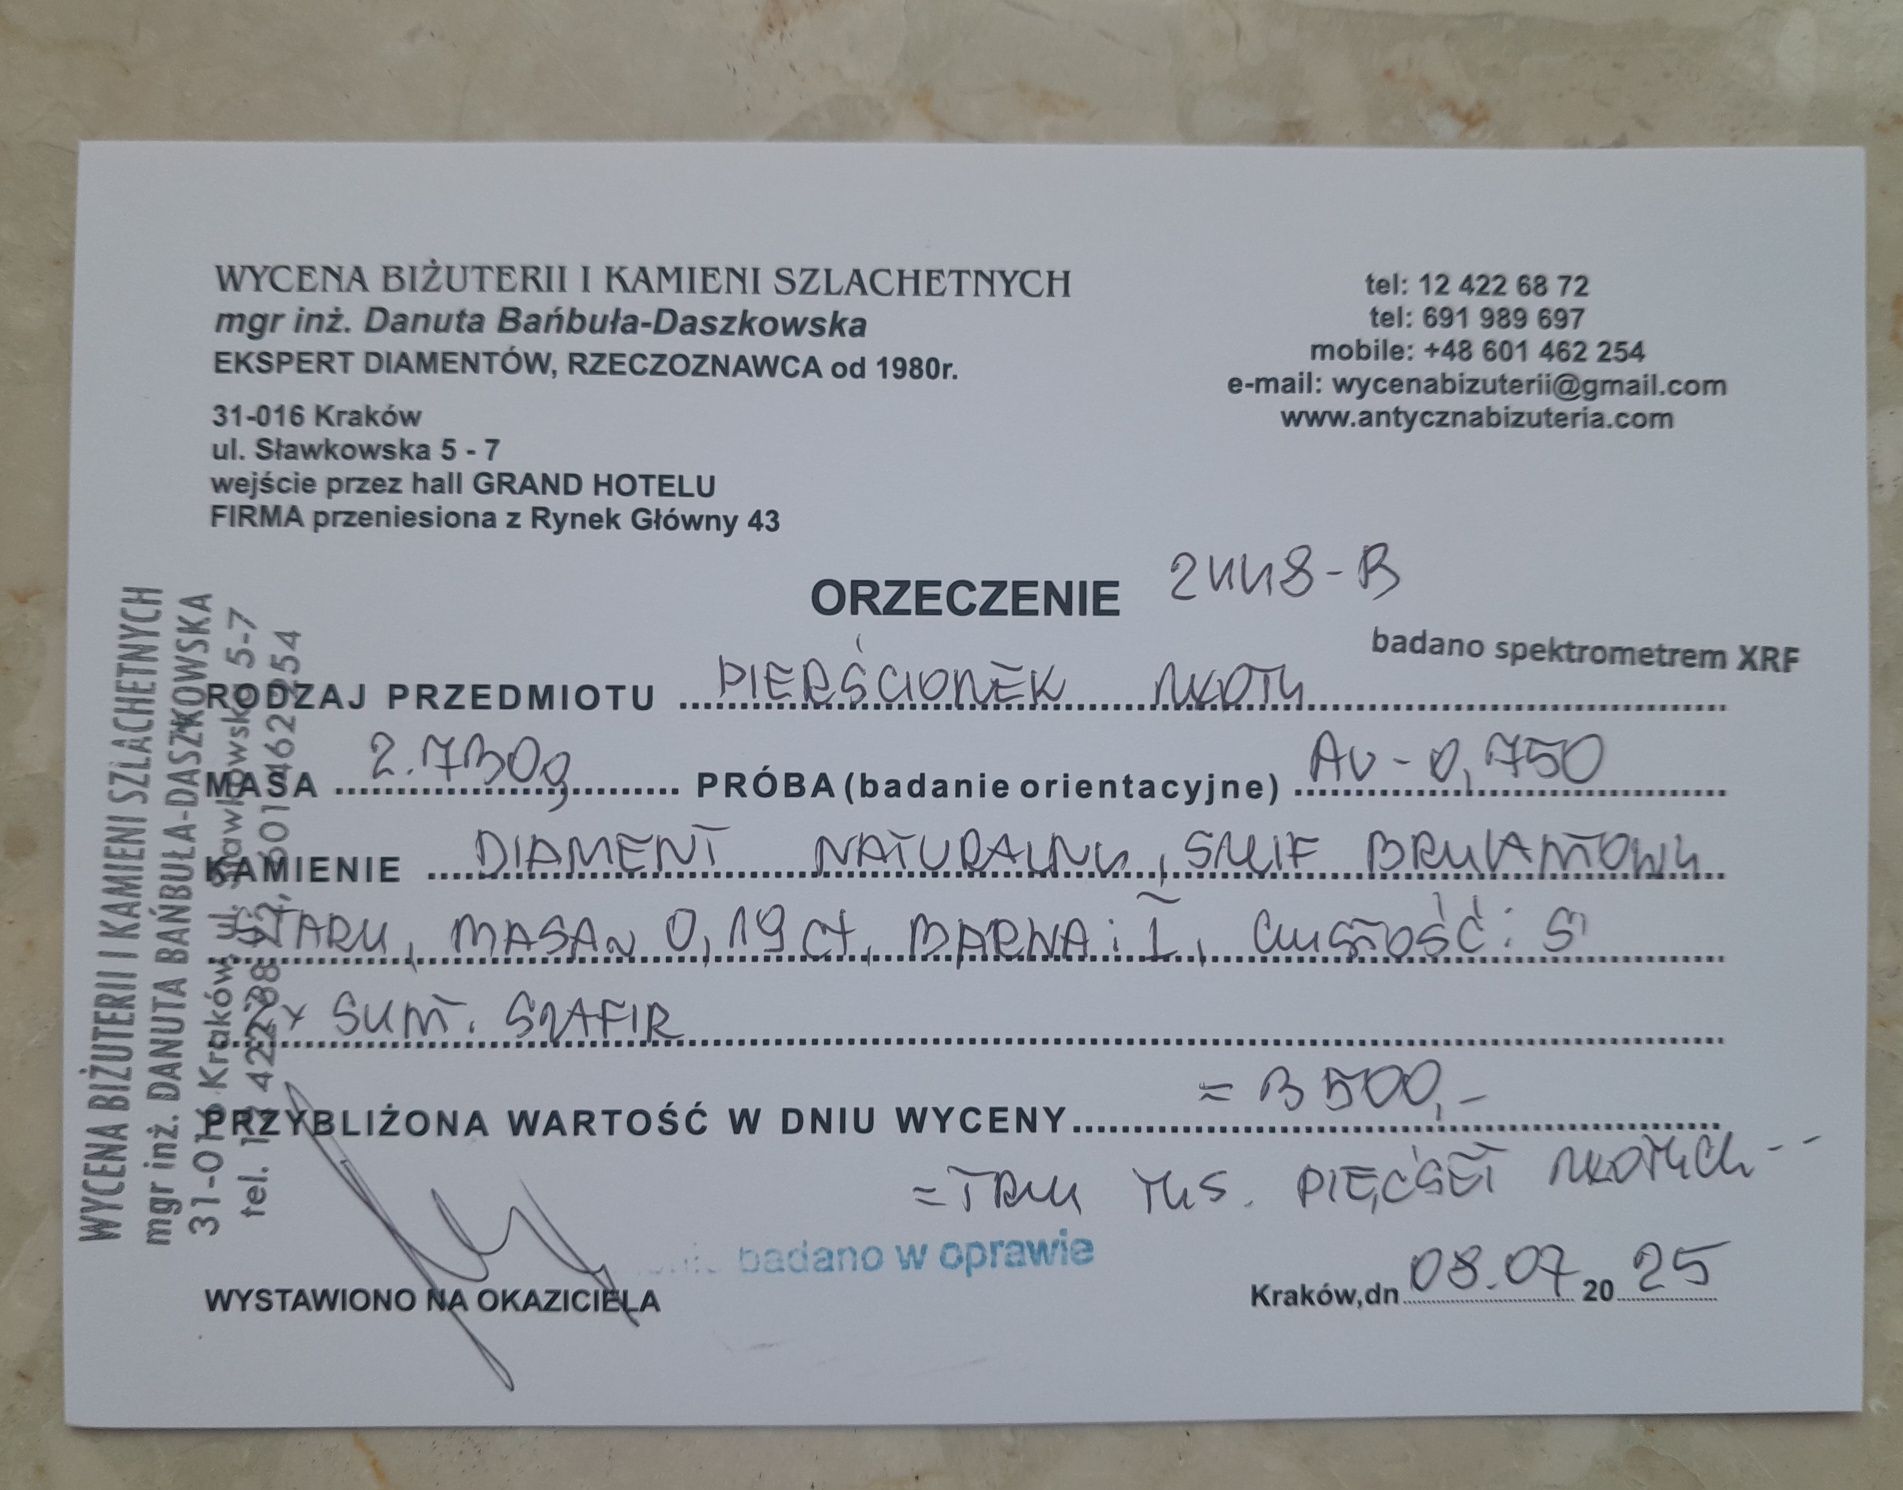 WYCENA BIŻUTERII I KAMIENI SZLACHETNYCH
mgr inż. Danuta Bańbuła-Daszkowska
EKSPERT DIAMENTÓW, RZECZOZNAWCA od 1980r.
31-016 Kraków
ul. Sławkowska 5 - 7
wejście przez hall GRAND HOTELU
FIRMA przeniesiona z Rynek Główny 43
tel: 12 422 68 72
tel: 691 989 697
mobile: +48 601 462 254
e-mail: wycenabizuterii@gmail.com
www.antycznabizuteria.com
ORZECZENIE 2448-B
badano spektrometrem XRF
RODZAJ PRZEDMIOTU PIERŚCIONEK ZŁOTY
MASA 2.730g PRÓBA (badanie orientacyjne) AU - 0,750
KAMIENIE DIAMENT NATURALNY, SZLIF BRYLANTOWY
STARY, MASA 0,19 ct, BARWA: I, CZYSTOŚĆ: SI
SYNT. SZAFIR
PRZYBLIŻONA WARTOŚĆ W DNIU WYCENY = 3500,-
= TRZY TYS. PIĘĆSET ZŁOTYCH --
badano w oprawie
WYSTAWIONO NA OKAZICIELA
Kraków, dn 08.07 20 25
WYCENA BIŻUTERII I KAMIENI SZLACHETNYCH
mgr inż. DANUTA BAŃBUŁA-DASZKOWSKA
31-016 Kraków, ul. Sławkowska 5-7
tel. 12 422 601 462 254